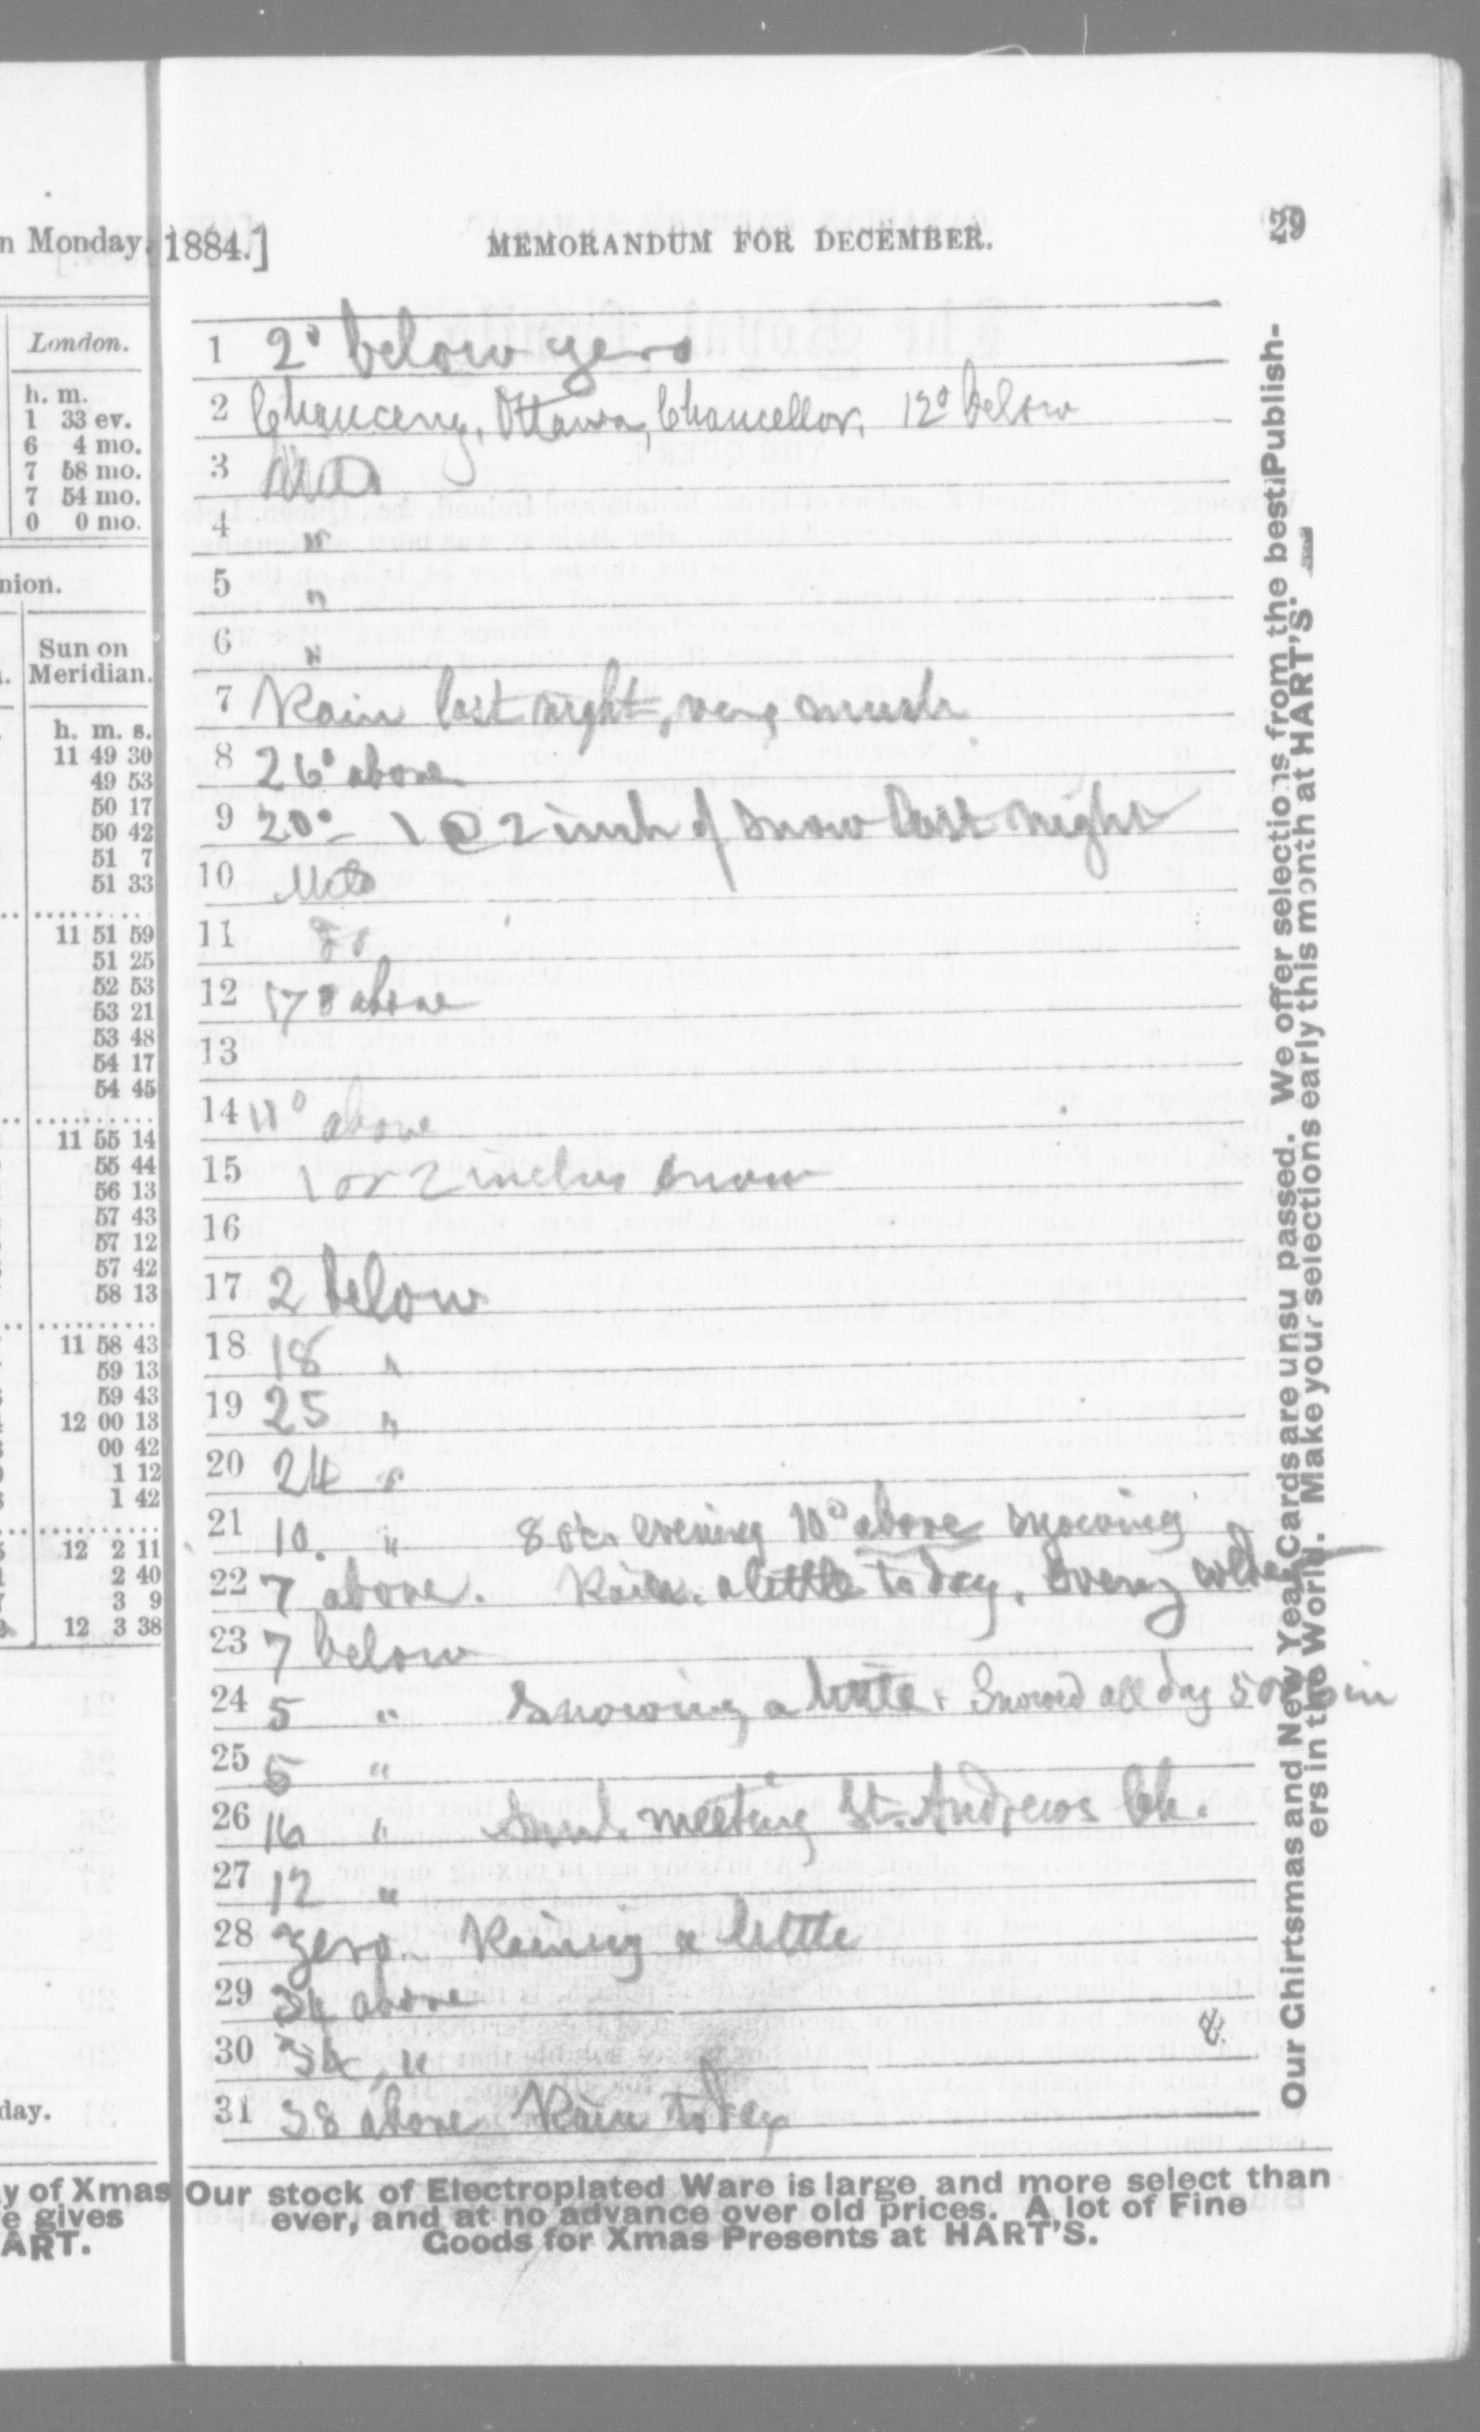 n Monday.
London.
h. m.
1 33 ev.
6 4 mo.
7 58 mo.
7 54 mo.
0 0 mo.
nion.
Sun on
Meridian.
h. m. s.
11 49 30
49 53
50 17
50 42
51 7
51 33
11 51 59
51 25
52 53
53 21
53 48
54 17
54 45
11 55 14
55 44
56 13
57 43
57 12
57 42
58 13
11 58 43
59 13
59 43
12 00 13
00 42
1 12
1 42
12 2 11
2 40
3 9
12 3 38
day.
y of Xmas
e gives
ART.
1884.]
MEMORANDUM FOR DECEMBER.
29
1 2° below zero
2 Chancery, Ottawa, Chancellor, 12° below
3 Mild
4 "
5 "
6 "
7 Rain last night, very much
8 26° above
9 20° – 1 @ 2 inch of snow last night
10 Mild
11 Do
12 17° above
13
14 11° above
15 1 or 2 inches snow
16
17 2 below
18 18 "
19 25 "
20 24 "
21 10. " 8 oc. evening 10° above snowing
22 7 above. Rain a little today. Eveng colder
23 7 below
24 5 " Snowing a little. Snowed all day 5 or 6 in
25 5 "
26 16 " Annl. meeting St. Andrews Ch.
27 12 "
28 Zero. Raining a little
29 34 above
30 34 "
31 38 above Rain today
Our Chirtsmas and New Year Cards are unsu passed. We offer selections from the best Publish-
ers in the World. Make your selections early this month at HART'S.
Our stock of Electroplated Ware is large and more select than
ever, and at no advance over old prices. A lot of Fine
Goods for Xmas Presents at HART'S.